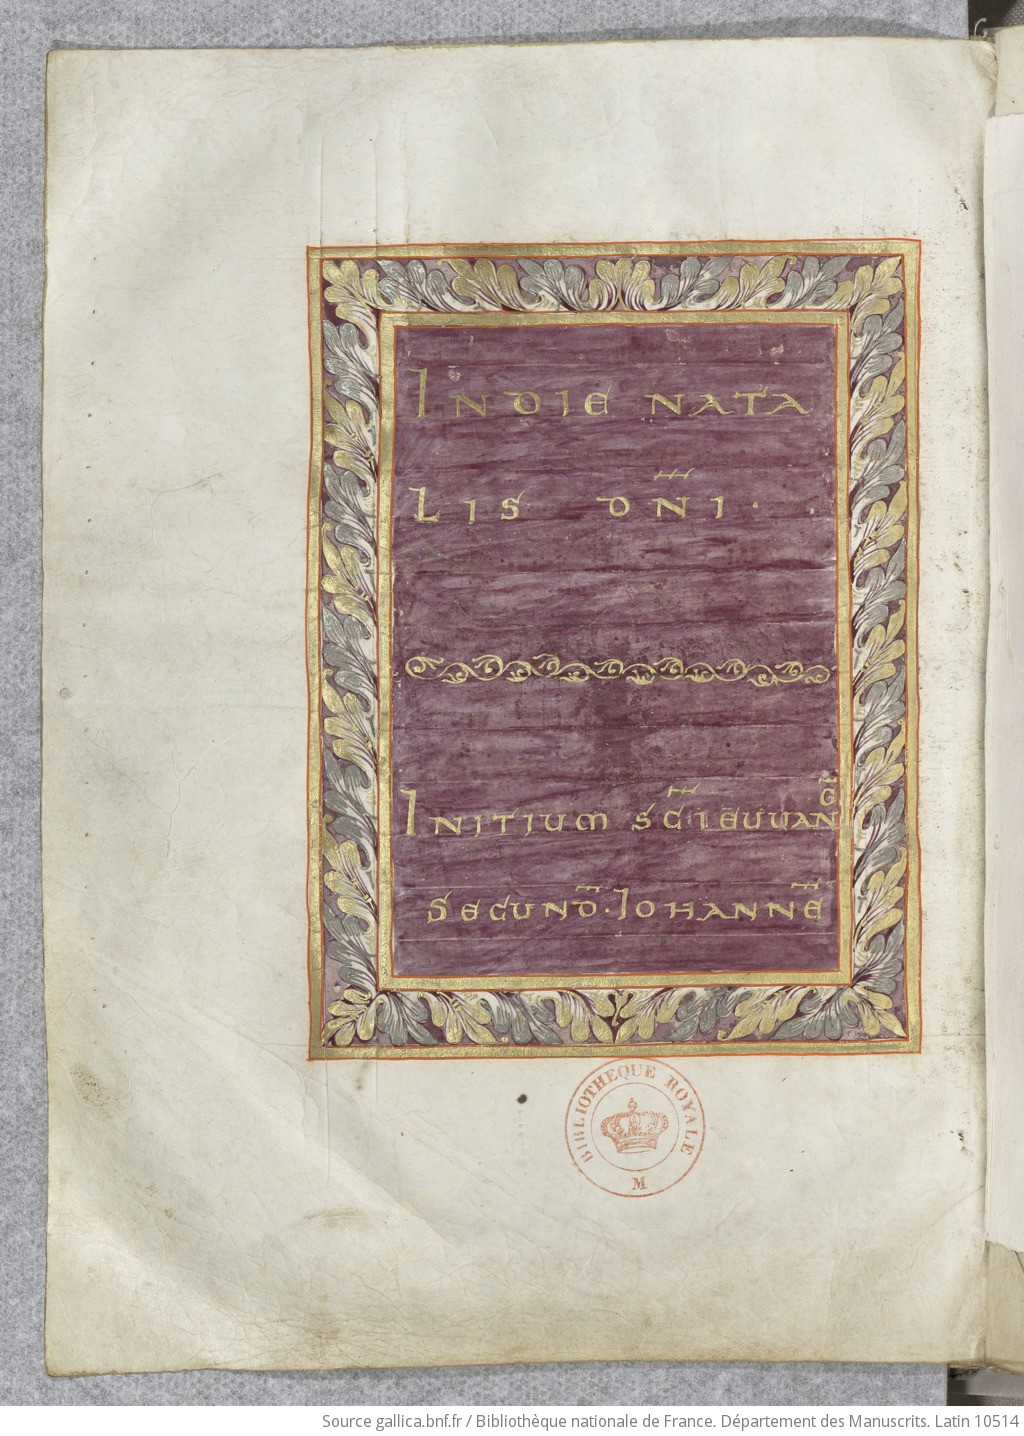 INDIE NATA
LIS DNI ·
INITIUM SCI EUUANG
SECUND · IOHANNE
BIBLIOTHEQUE ROYALE
M
Source gallica.bnf.fr / Bibliothèque nationale de France. Département des Manuscrits. Latin 10514